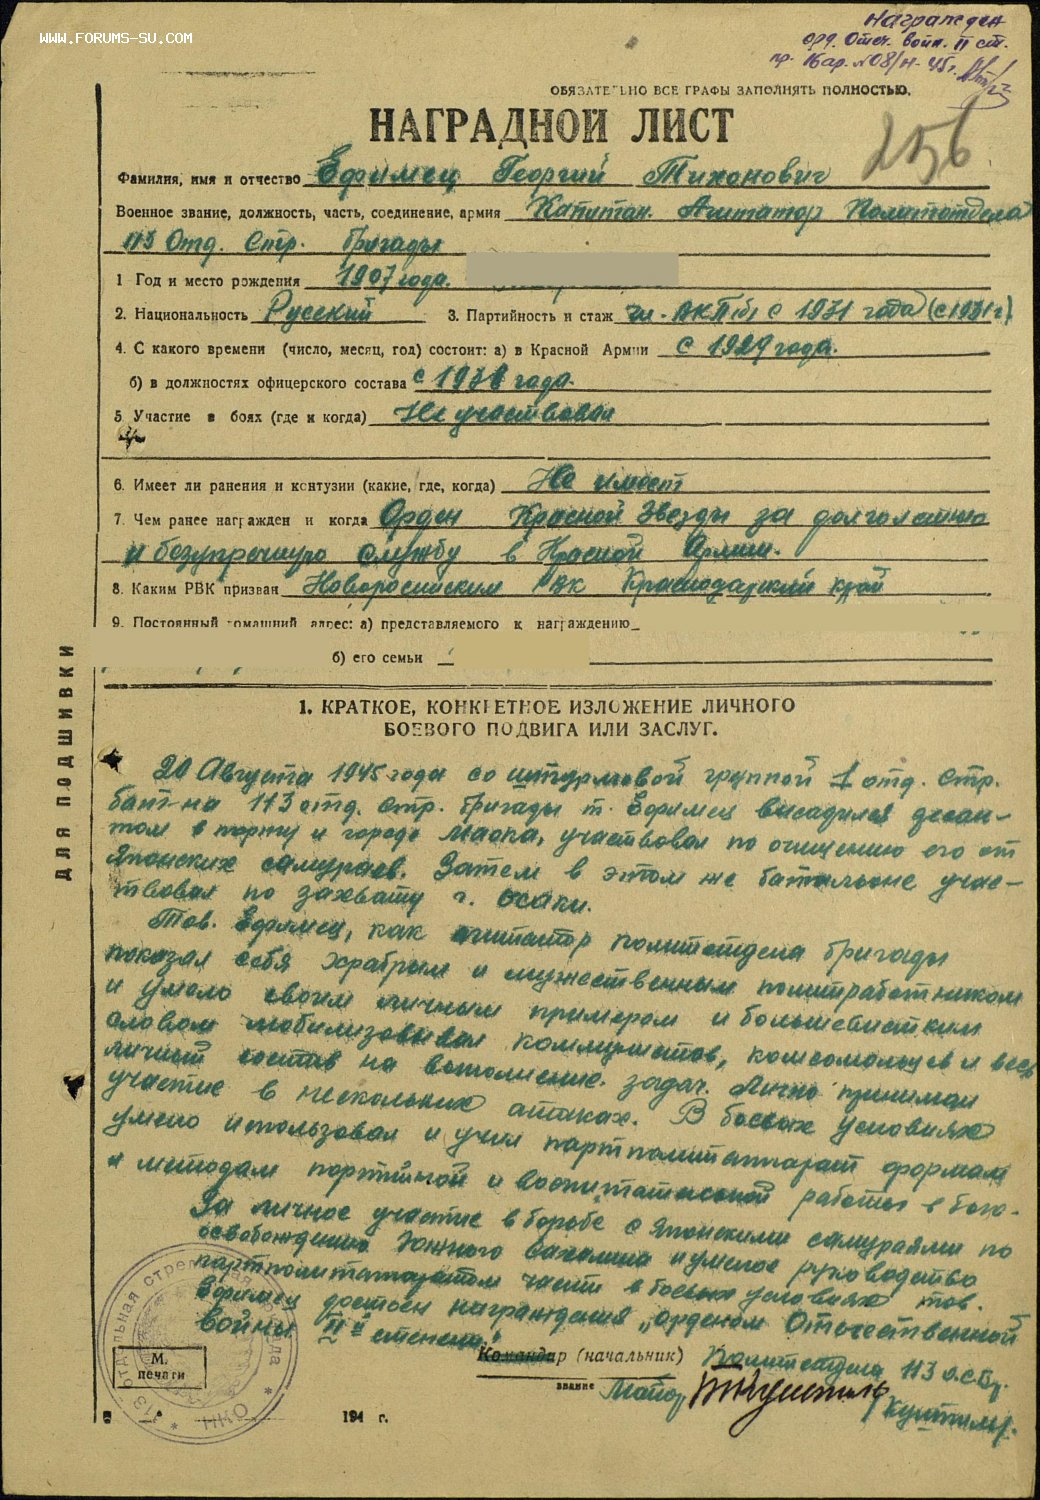 WWW.FORUMS-SU.COM
Награжден
орд. Отеч. войн. II ст.
пр. 16 ар. №08/н-45г.
ОБЯЗАТЕЛЬНО ВСЕ ГРАФЫ ЗАПОЛНЯТЬ ПОЛНОСТЬЮ.
НАГРАДНОЙ ЛИСТ
256
Фамилия, имя и отчество Ефимец Георгий Тихонович
Военное звание, должность, часть, соединение, армия Капитан. Агитатор Политотдела
113 Отд. Стр. бригады
1 Год и место рождения 1907 года.
2. Национальность Русский 3. Партийность и стаж чл. ВКП(б) с 1931 года (с 1931 г.)
4. С какого времени (число, месяц, год) состоит: а) в Красной Армии с 1929 года.
б) в должностях офицерского состава с 1938 года.
5. Участие в боях (где и когда) Не участвовал
6. Имеет ли ранения и контузии (какие, где, когда) Не имеет
7. Чем ранее награжден и когда Орден Красной Звезды за долголетнюю
и безупречную службу в Красной Армии.
8. Каким РВК призван Новоросийским РВК Краснодарский край
9. Постоянный домашний адрес: а) представляемого к награждению
б) его семьи
ДЛЯ ПОДШИВКИ
1. КРАТКОЕ, КОНКРЕТНОЕ ИЗЛОЖЕНИЕ ЛИЧНОГО
БОЕВОГО ПОДВИГА ИЛИ ЗАСЛУГ.
20 Августа 1945 года со штурмовой группой 1 отд. стр.
бат-на 113 отд. стр. бригады т. Ефимец высадился десан-
том в порту и городе Маока, участвовал по очищению его от
Японских самураев. Затем в этом же батальоне учас-
твовал по захвату г. Осаки.
Тов. Ефимец, как агитатор политотдела бригады
показал себя храбрым и мужественным политработником
и умело своим личным примером и большевистким
словом мобилизовывал коммунистов, комсомольцев и весь
личный состав на выполнение задач. Лично принимал
участие в нескольких атаках. В боевых условиях
умело использовал и учил партполитаппарат формам
и методам партийной и воспитательной работы в бою.
За личное участие в борьбе с Японскими самураями по
освобождению Южного Сахалина и умелое руководство
партполитаппаратом части в боевых условиях тов.
Ефимец достоен награждения „орденом Отечественной
войны II й степени."
Командир (начальник) Политотдела 113 о.с.бр.
звание Майор
М.
печати
194 г.